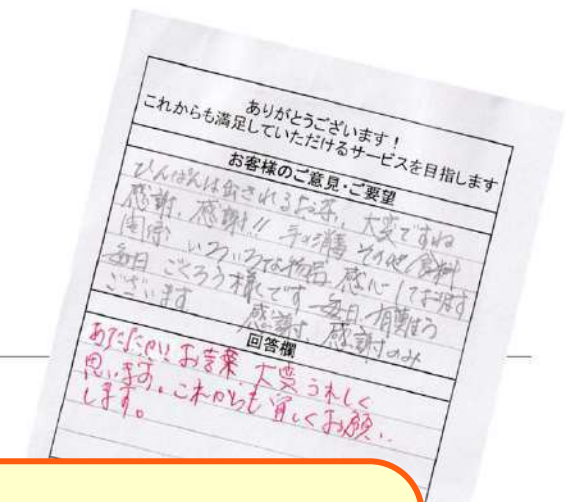 ありがとうございます！
これからも満足していただけるサービスを目指します
お客様のご意見・ご要望
ひんぱんに出されるお茶、大変ですね
感謝、感謝!! 手の消毒 その他 食料
関係 いろいろな物品 感心しております
毎日 ごくろう様です 毎日 有難う
ございます 感謝、感謝のみ
回答欄
あたたかいお言葉、大変うれしく
思います。これからも宜しくお願い
します。